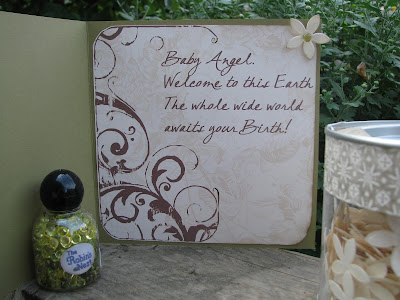 Baby Angel.
Welcome to this Earth
The whole wide world
awaits your Birth!
The
Robin's
Nest